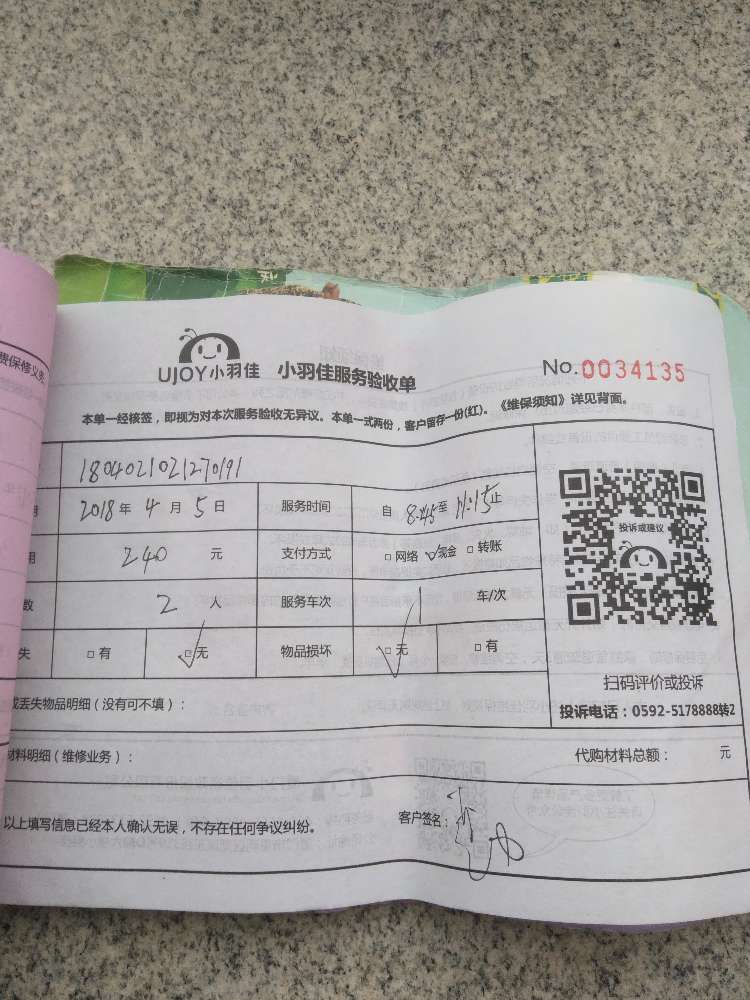 费保修义务
UJOY小羽佳 小羽佳服务验收单 No.0034135
本单一经核签，即视为对本次服务验收无异议。本单一式两份，客户留存一份(红)。《维保须知》详见背面。
1804021021270191
2018年4月5日 服务时间 自8:45至11:15止
用 240元 支付方式 □网络 √现金 □转账
数 2人 服务车次 1 车/次
失 □有 ☑无 物品损坏 ☑无 □有
投诉或建议
扫码评价或投诉
投诉电话：0592-5178888转2
或丢失物品明细（没有可不填）：
材料明细（维修业务）： 代购材料总额： 元
以上填写信息已经本人确认无误，不存在任何争议纠纷。 客户签名：